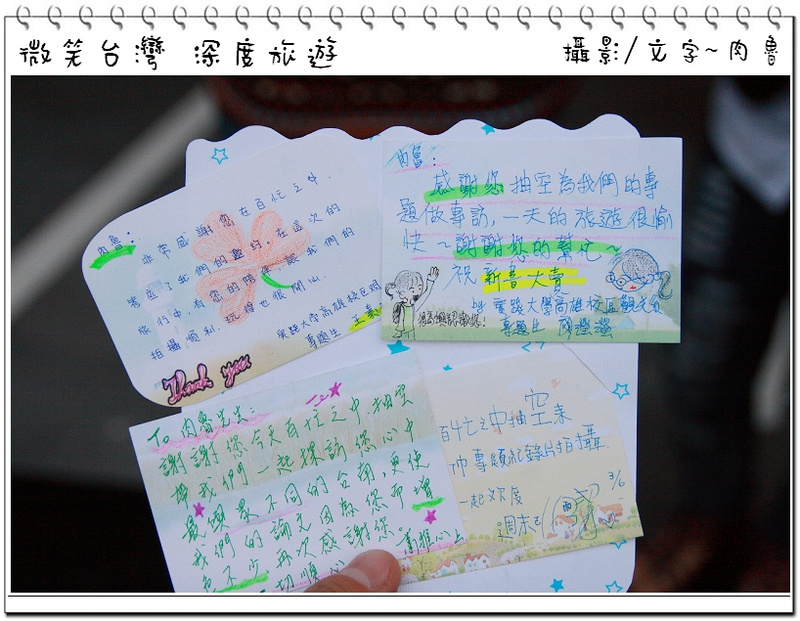 微笑台灣 深度旅遊
攝影/文字~肉魯
肉魯：
非常感謝您在百忙之中，
答應了我們的邀約，在這次的
旅行中，有您的陪伴，讓我們的
拍攝順利，玩得也很開心。
實踐大學高雄校區
專題生
Thank you
肉魯：
感謝您抽空為我們的專
題做專訪，一天的旅遊很愉
快～謝謝您的幫忙～
祝 新書大賣
實踐大學高雄校區觀光系
專題生
To 肉魯先生：
謝謝您今天百忙之中抽空
帶我們一起探訪您心中
最與眾不同的台南，更使
我們的論文因為您而增
色不少，再次感謝您
一切順心
百忙之中抽空來
專題紀錄片拍攝
一起歡度
週末
3/6